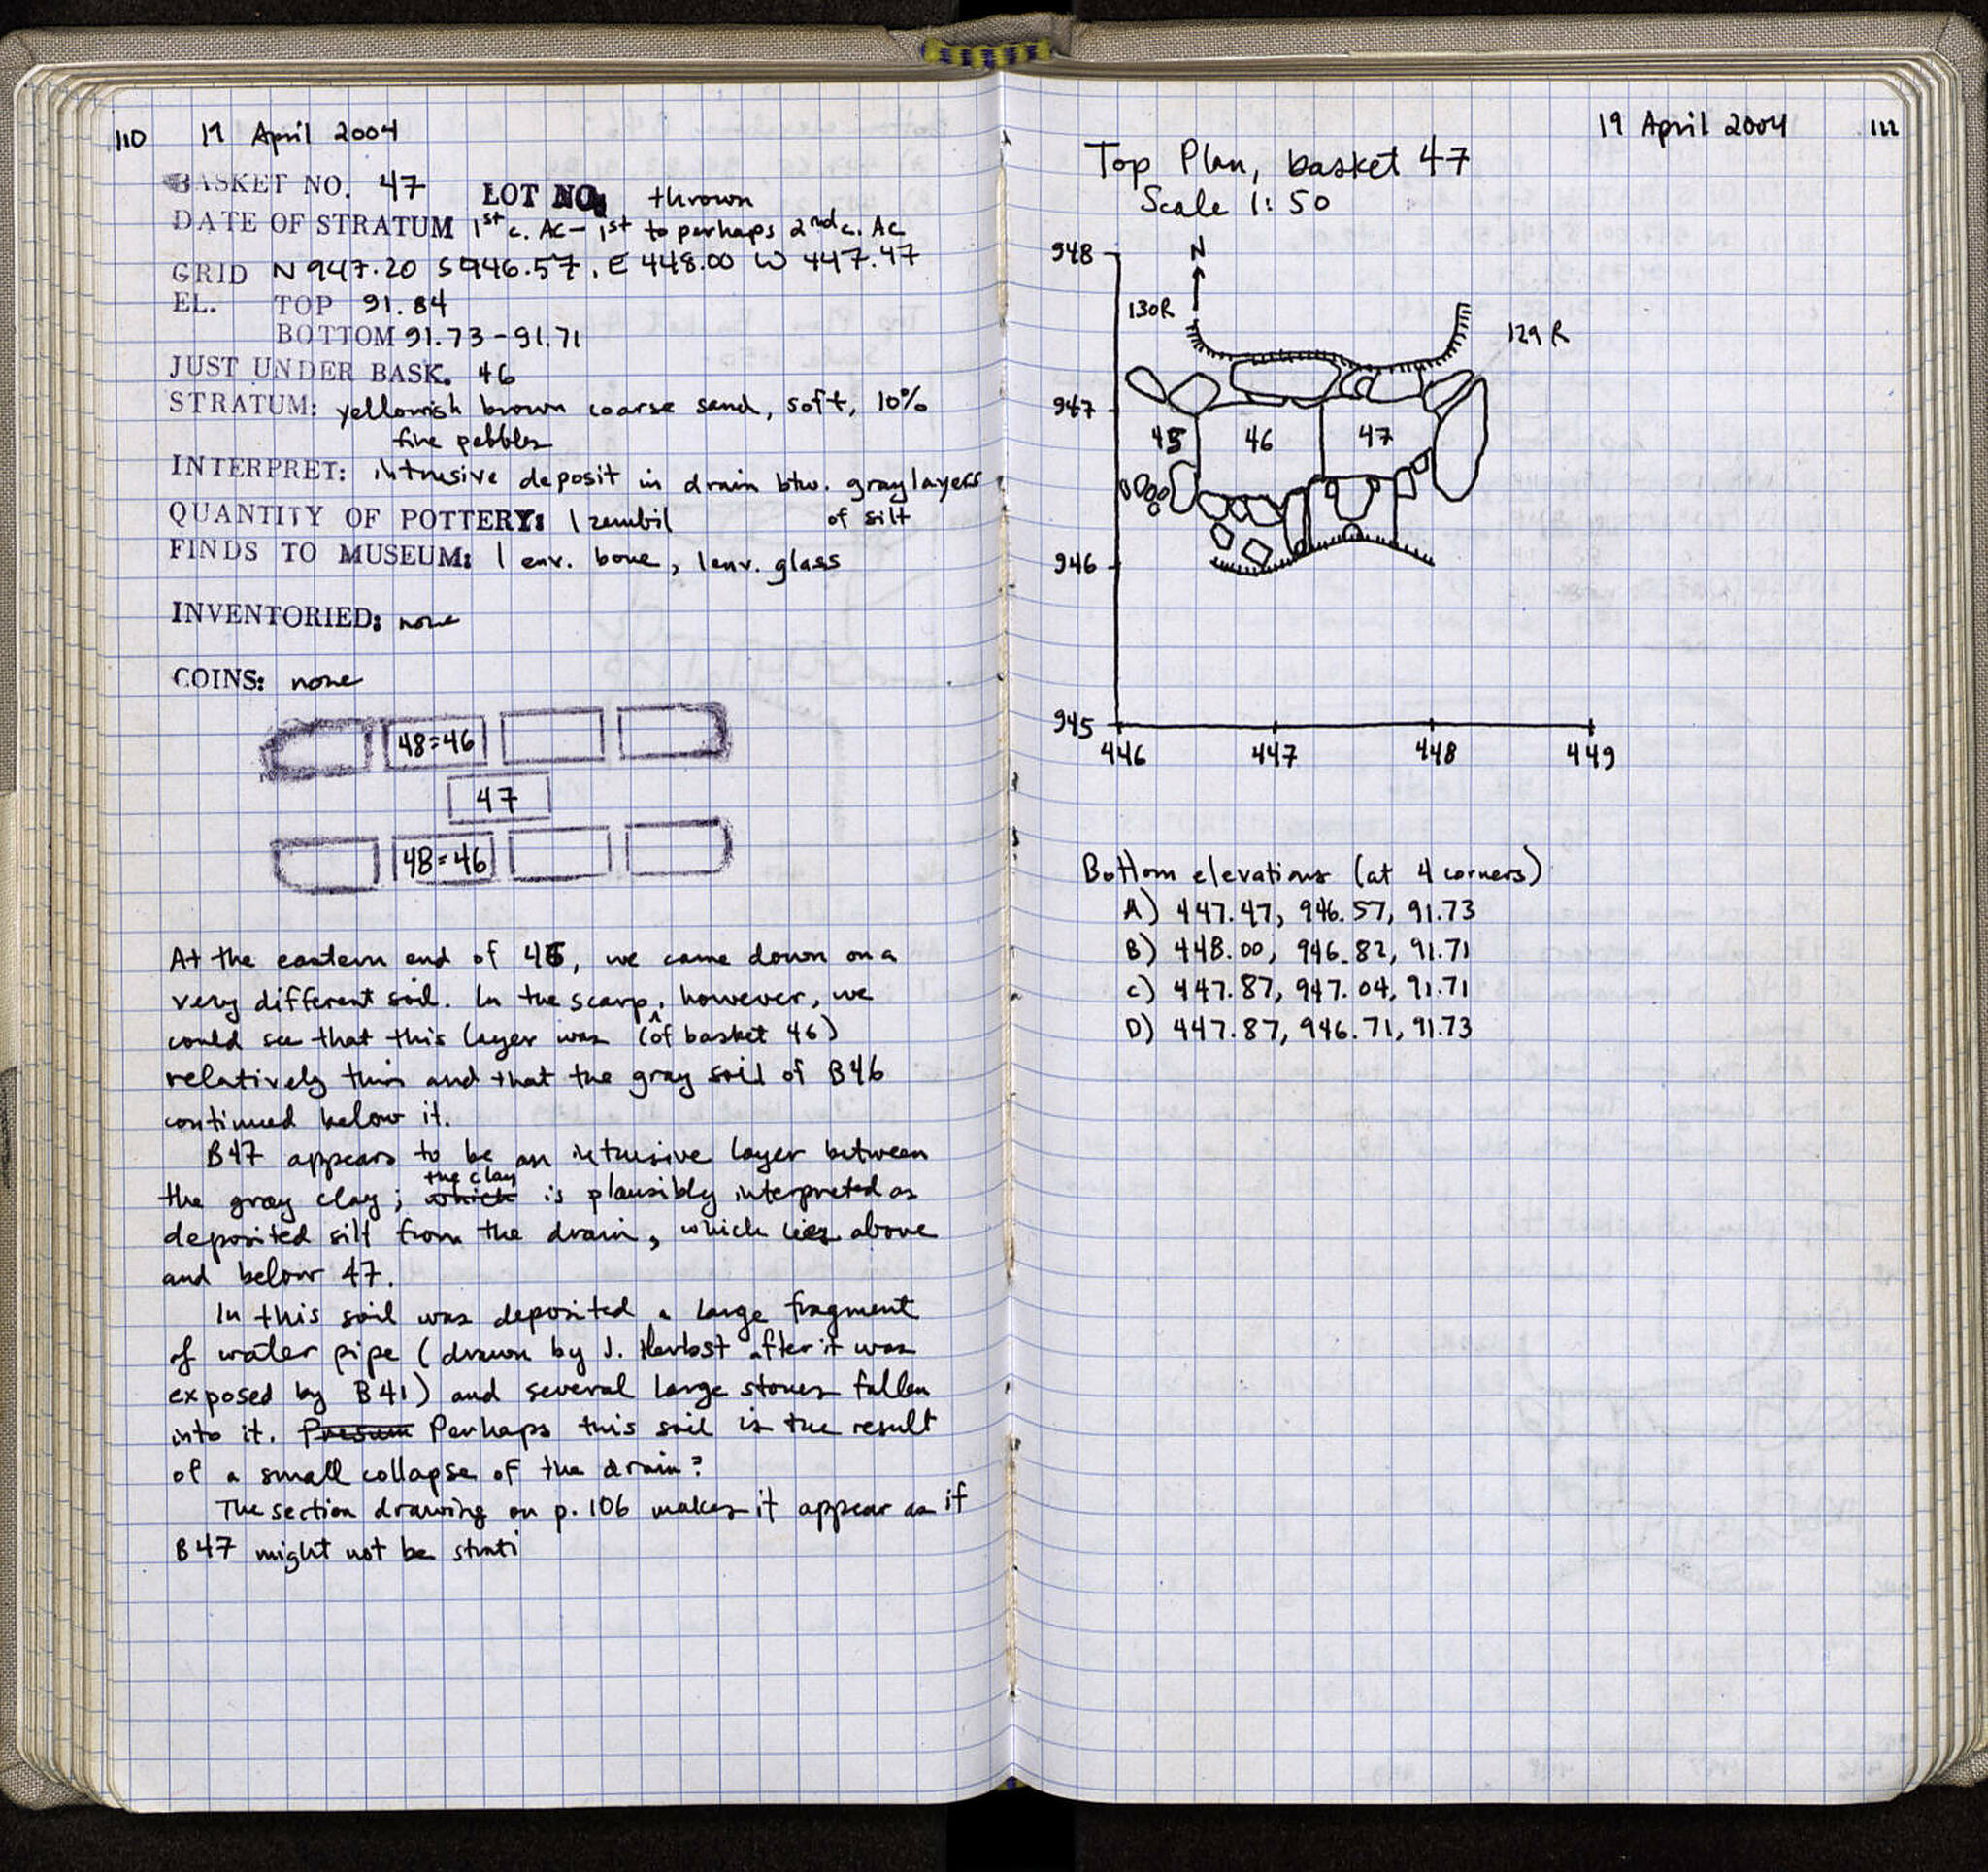 110 19 April 2004
BASKET NO. 47 LOT NO. thrown
DATE OF STRATUM 1st c. AC - 1st to perhaps 2nd c. AC
GRID N 947.20 S 946.57, E 448.00 W 447.47
EL. TOP 91.84
BOTTOM 91.73-91.71
JUST UNDER BASK. 46
STRATUM: yellowish brown coarse sand, soft, 10%
fine pebbles
INTERPRET: intrusive deposit in drain btw. gray layers
of silt
QUANTITY OF POTTERY: 1 zembil
FINDS TO MUSEUM: 1 env. bone, 1 env. glass
INVENTORIED: none
COINS: none
48=46
47
48=46
At the eastern end of 46, we came down on a
very different soil. In the scarp, however, we
could see that this layer was (of basket 46)
relatively thin and that the gray soil of B46
continued below it.
B47 appears to be an intrusive layer between
the clay
the gray clay; which is plausibly interpreted as
deposited silt from the drain, which lies above
and below 47.
In this soil was deposited a large fragment
of water pipe (drawn by J. Herbst after it was
exposed by B41) and several large stones fallen
into it. Presum Perhaps this soil is the result
of a small collapse of the drain?
The section drawing on p. 106 makes it appear as if
B47 might not be strati
19 April 2004
Top Plan, basket 47
Scale 1:50
948
N
130R
129R
947
45 46 47
946
945
446 447 448 449
Bottom elevations (at 4 corners)
A) 447.47, 946.57, 91.73
B) 448.00, 946.82, 91.71
C) 447.87, 947.04, 91.71
D) 447.87, 946.71, 91.73